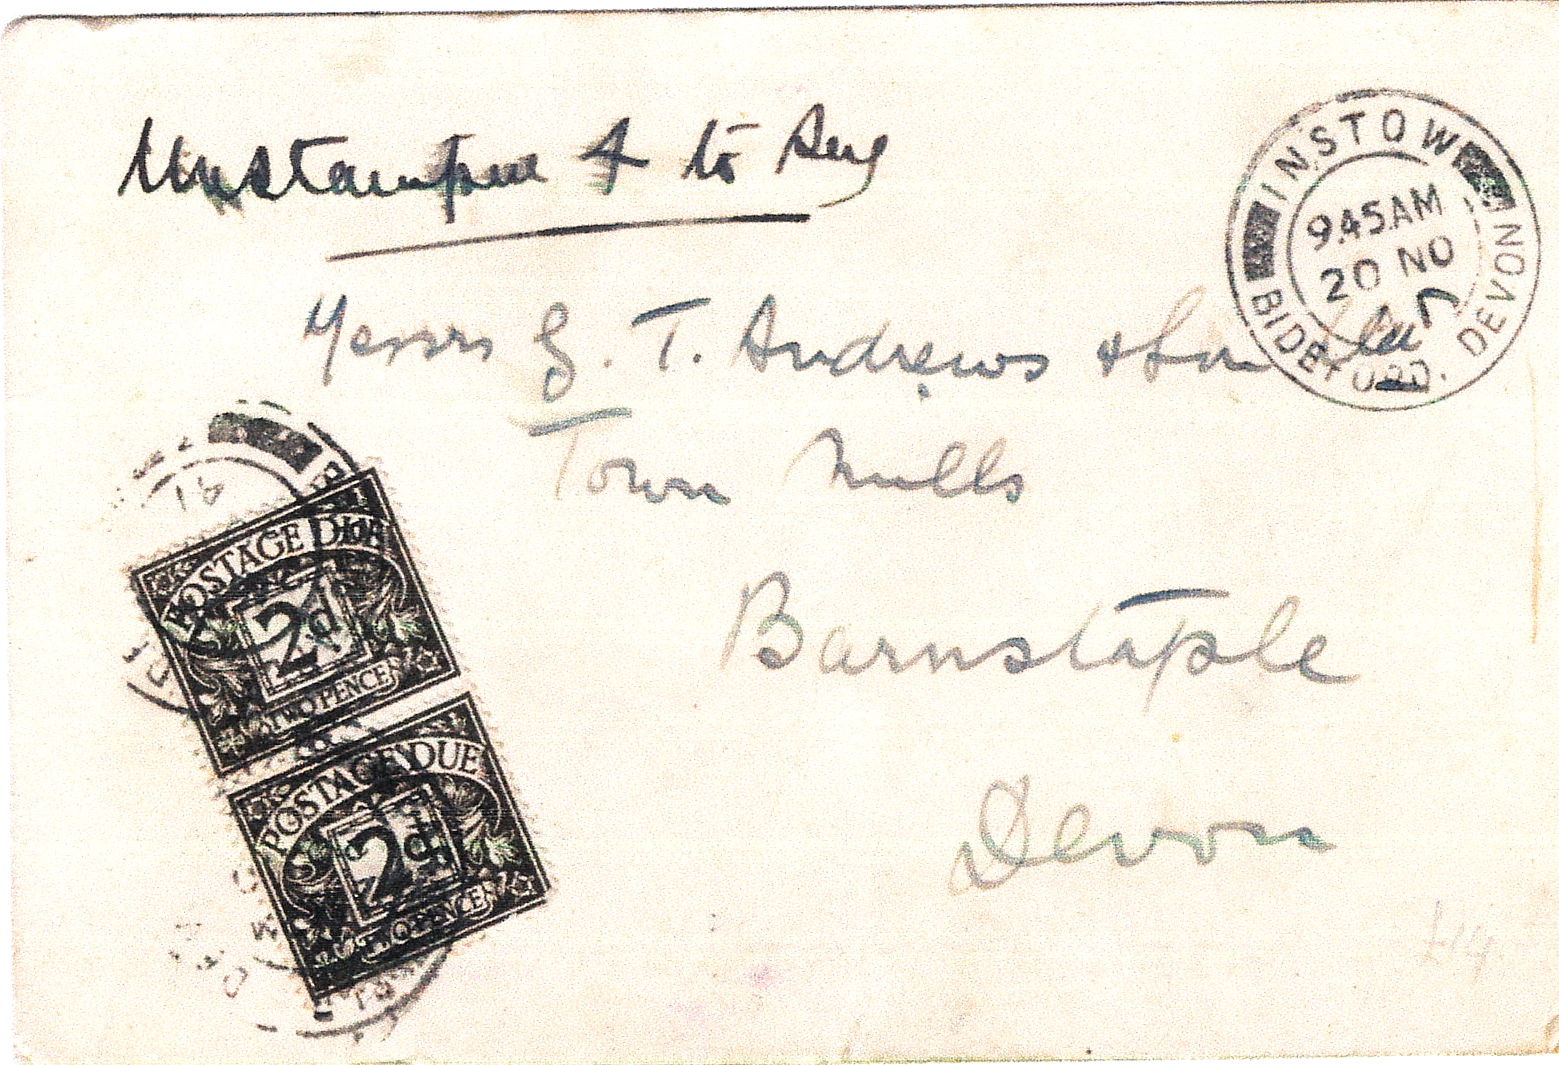 Unstamped & to Pay
INSTOW
9.45AM
20 NO
BIDEFORD. DEVON
Messrs G. T. Andrews & Son Ltd
Town Mills
Barnstaple
Devon
POSTAGE DUE
2d
TWO PENCE
POSTAGE DUE
2d
TWO PENCE
£14